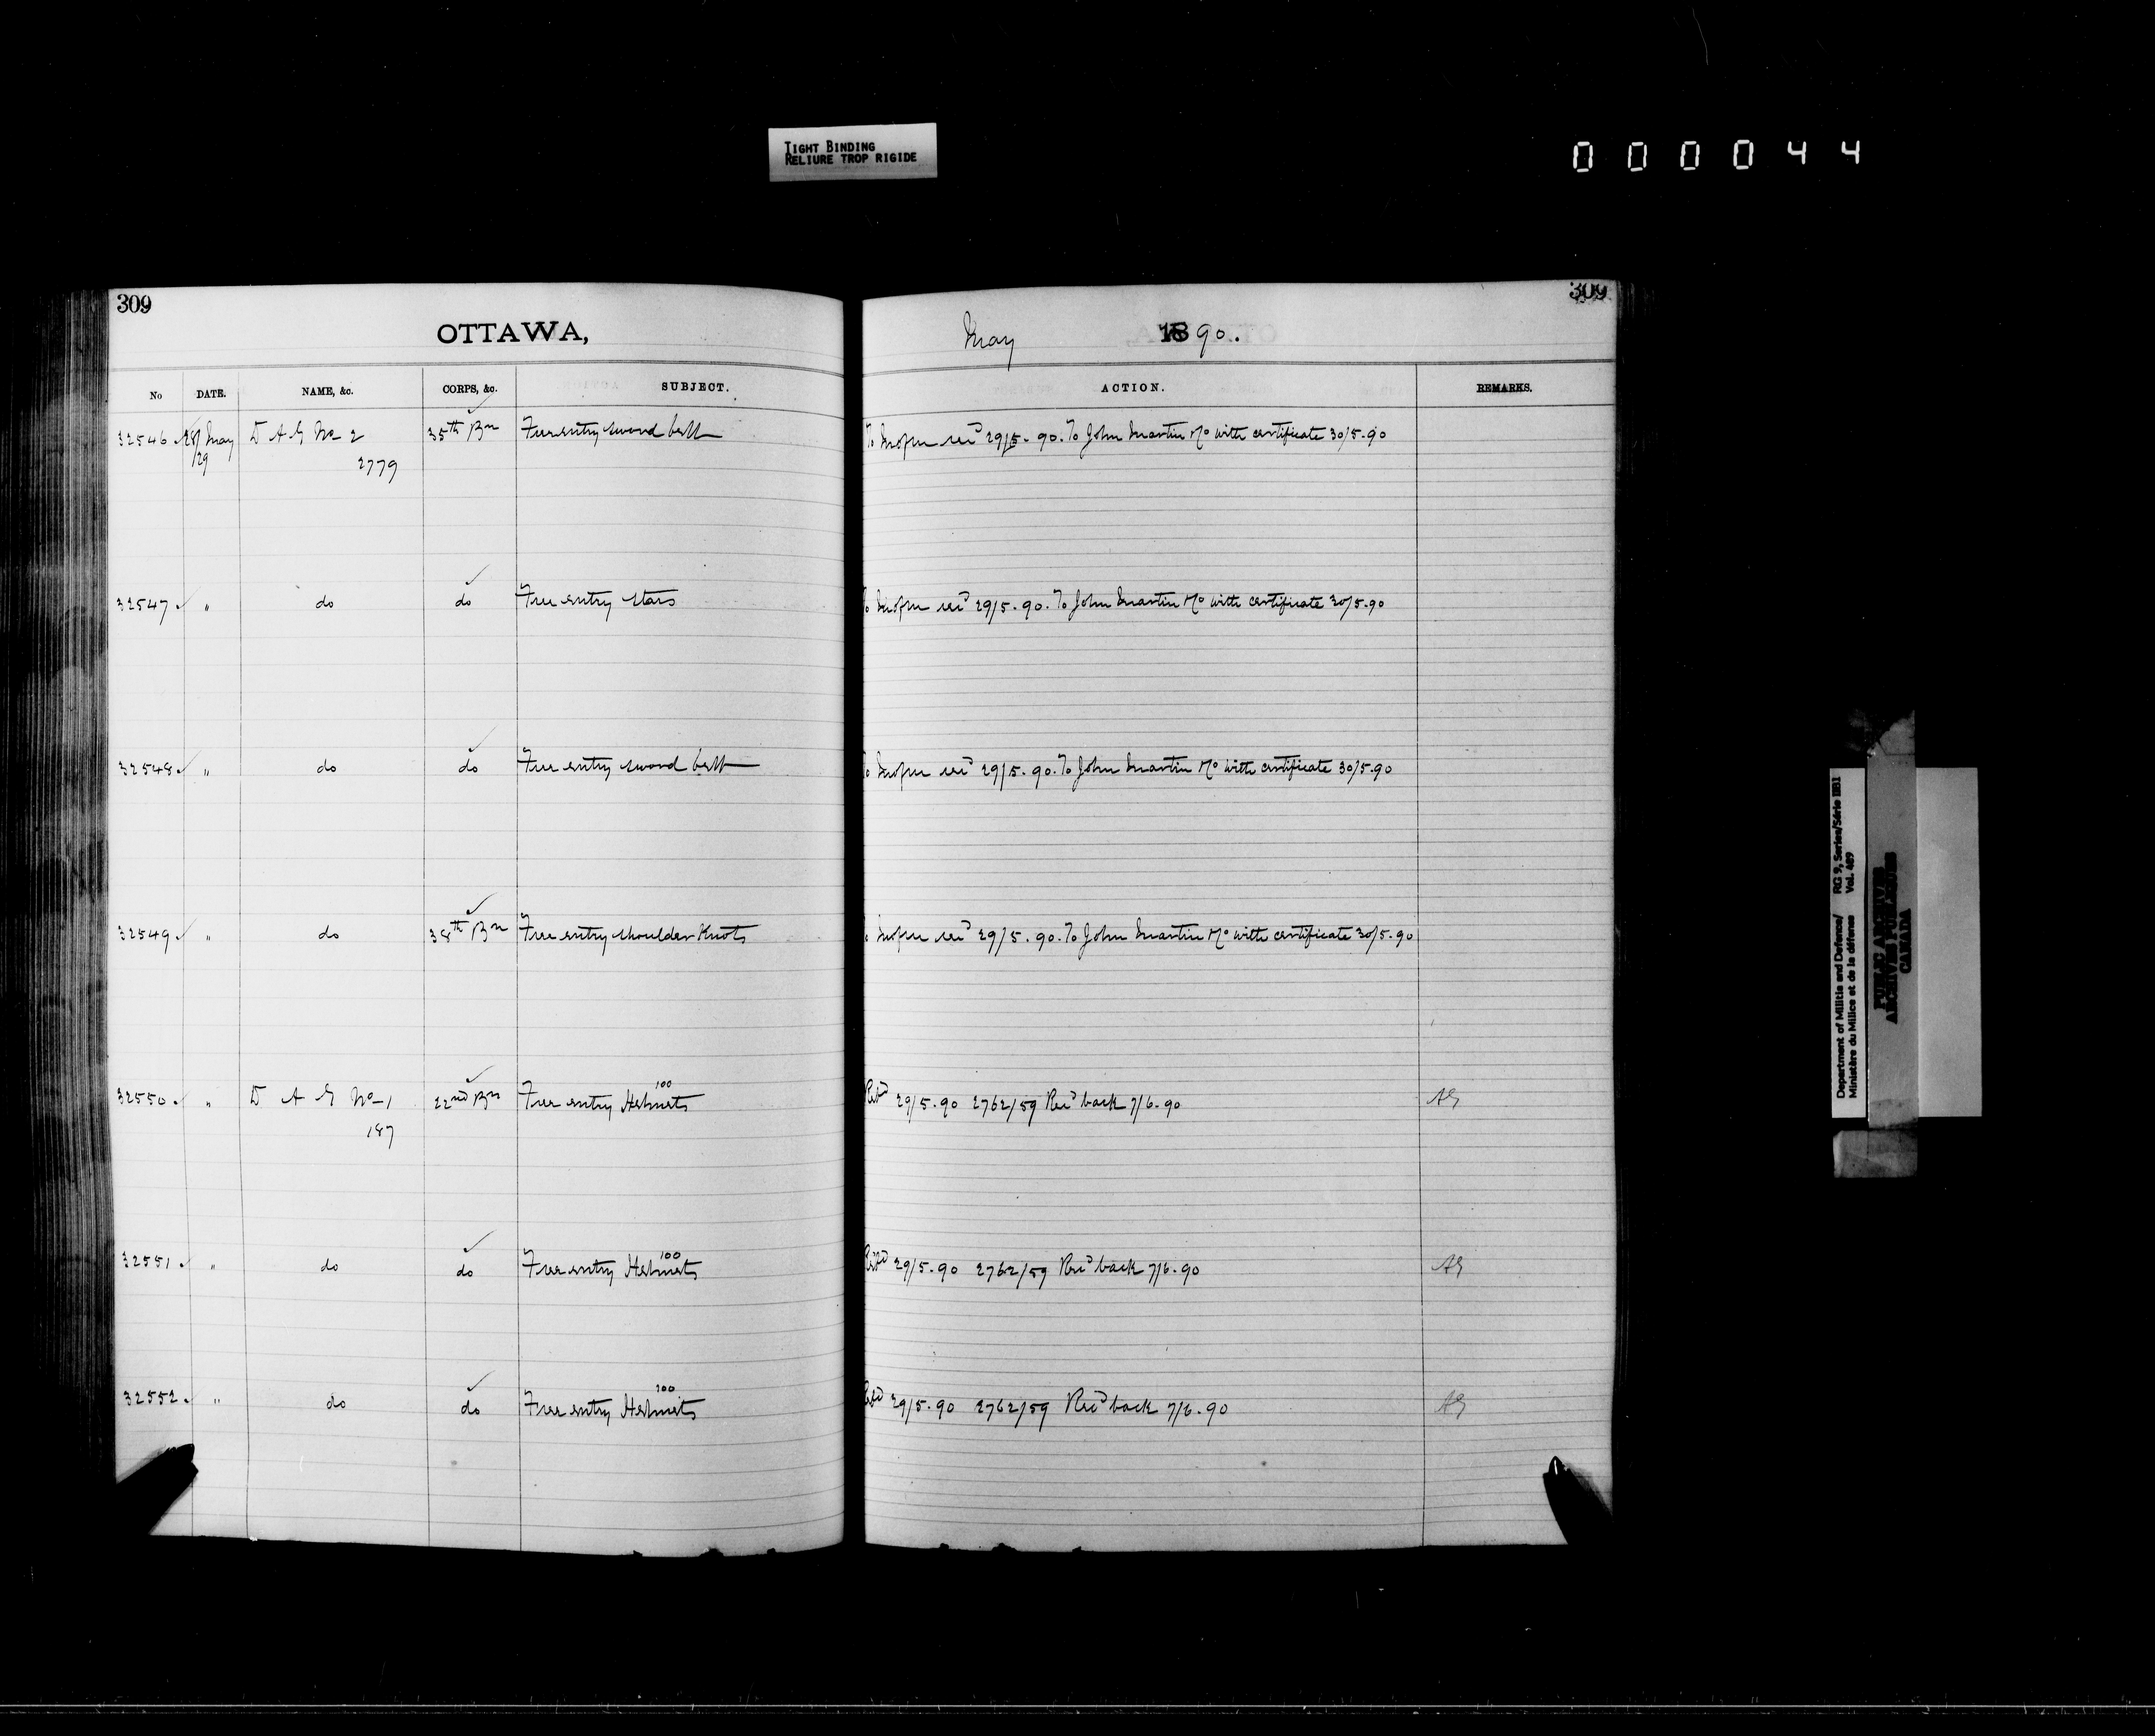 TIGHT BINDING
RELIURE TROP RIGIDE
000044
309
309
OTTAWA, May 1890.
No DATE. NAME, &c. CORPS, &c. SUBJECT. ACTION. REMARKS.
32546 28/ May D A G No 2 35th Bn Free entry sword belt 29/5-90. To John Martin Mo with certificate 30/5-90
/29 2779
32547 " do do Free entry stars 29/5-90. To John Martin Mo with certificate 30/5-90
32548 " do do Free entry sword belt 29/5-90. To John Martin Mo with certificate 30/5-90
32549 " do 38th Bn Free entry shoulder Knots 29/5-90. To John Martin Mo with certificate 30/5-90
100
32550 " D A G No 1 22nd Bn Free entry Helmets 29/5-90 2762/59 Recd back 7/6-90 AG
187
100
32551 " do do Free entry Helmets 29/5-90 2762/59 Recd back 7/6-90 AG
100
32552 " do do Free entry Helmets 29/5-90 2762/59 Recd back 7/6-90 AG
Department of Militia and Defence/ RG 9, Series/Série IIB1
Ministère du Milice et de la défense Vol. 489
PUBLIC ARCHIVES
ARCHIVES PUBLIQUES
CANADA